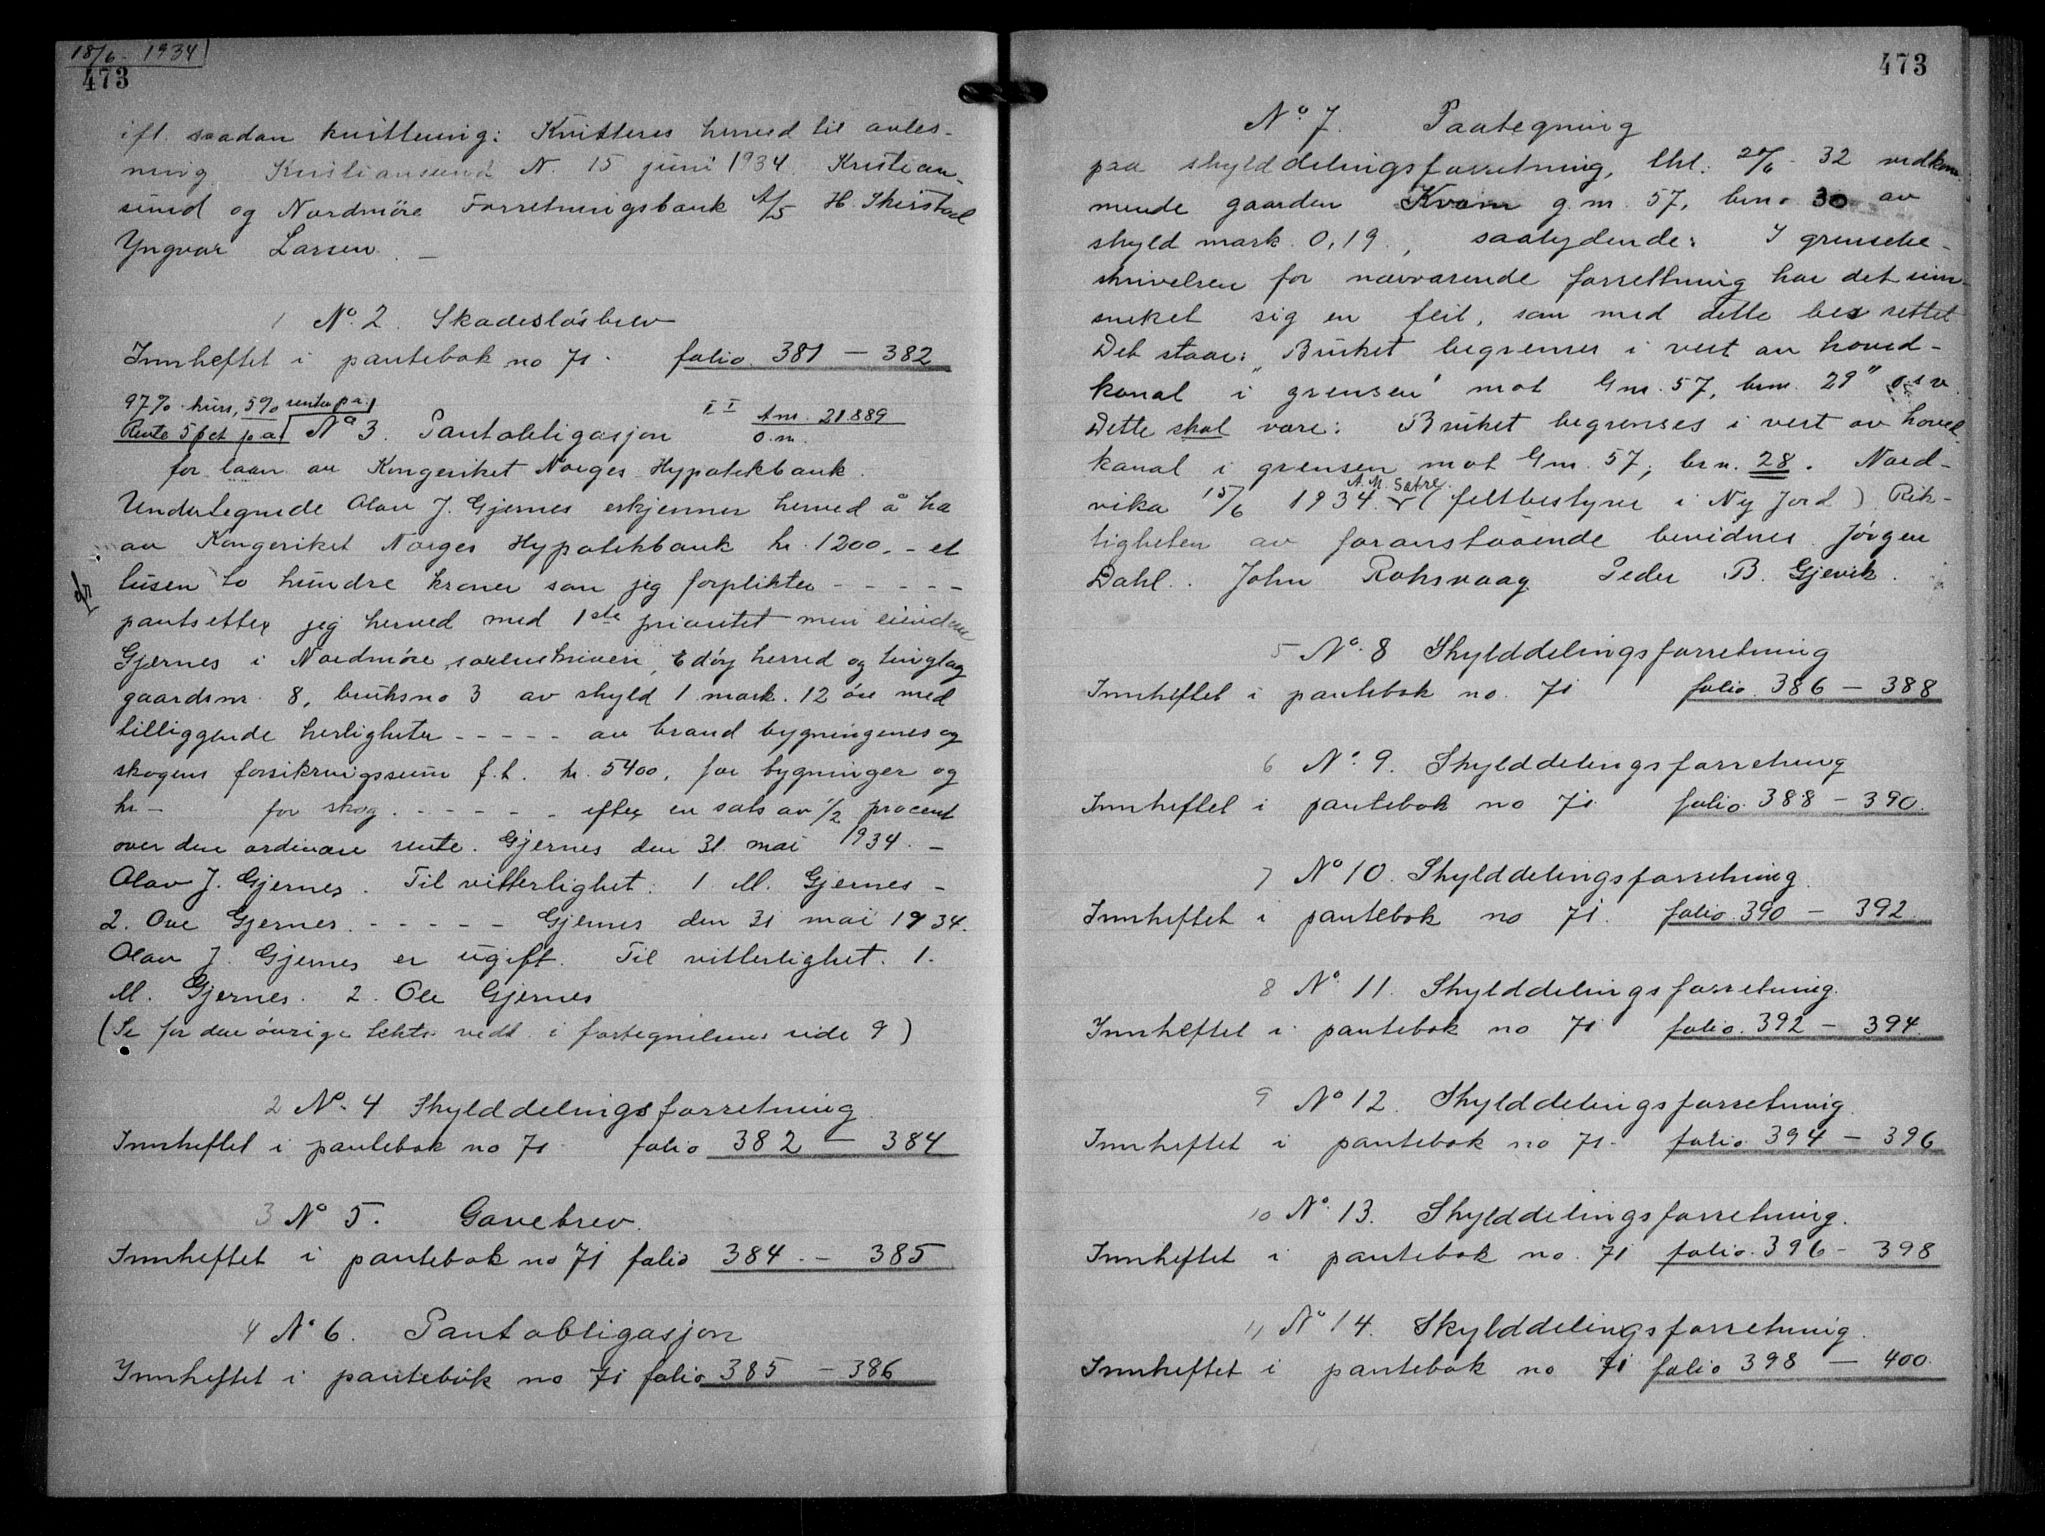 18/6 - 1934
473
ifl. saadan kvittering: Kvitteres herved til avles-
ning Kristiansund N. 15 juni 1934. Kristian-
sund og Nordmöre Forretningsbank A/S H.
Yngvar Larsen. -
1 No. 2. Skadeslösbrev
Innheftet i pantebok no 71. folio 381 - 382
97% kurs, 5% rente p.a.
Rente 5 pct p.a. No 3. Pantobligasjon I I Anr. 21889
o.m.
for laan av Kongeriket Norges Hypotekbank.
Undertegnede Olav J. Gjernes erkjenner herved å ha
av Kongeriket Norges Hypotekbank kr. 1200,- et
tusen to hundre kroner som jeg forplikter - - - - -
pantsetter jeg herved med 1ste prioritet min eiendom
Gjernes i Nordmöre sorenskriveri, Edöy herred og tinglag
gaardsnr. 8, bruksno 3 av skyld 1 mark. 12 öre med
tilliggende herligheter - - - - - av brand bygningenes og
skogens forsikringssum f.t. kr. 5400, for bygninger og
kr - for skog. - - - - - efter en sats av 1/2 procent
over den ordinære rente. Gjernes den 31 mai 1934. -
Olav J. Gjernes. Til vitterlighet: 1. M. Gjernes -
2. Ove Gjernes. - - - - - Gjernes den 31 mai 1934.
Olav J. Gjernes er ugift. Til vitterlighet. 1.
M. Gjernes. 2. Ole Gjernes
(Se for den övrige tekts vedk. i fortegnelsens side 9)
2 No. 4 Skylddelingsforretning.
Innheftet i pantebok no 71 folio 382 - 384
3 No 5. Gavebrev.
Innheftet i pantebok no 71 folio 384. - 385
4 No 6. Pantobligasjon
Innheftet i pantebok no 71 folio 385 - 386
473
No. 7. Paategning
paa skylddelingsforretning, thl. 20/6 - 32 vedkom-
mende gaarden Kvam g.nr. 57, brno 30 av
skyld mark. 0,19., saalydende: I grensebe-
skrivelsen for nærværende forrettning har det inn-
sneket sig en feil, som med dette bes rettet
Det staar: "Bruket begrenses i vest av hoved-
kanal i grensen mot Gnr. 57, brnr. 29" o.s.v.
Dette skal være: Bruket begrenses i vest av hoved-
kanal i grensen mot Gnr. 57, brn. 28. Nord-
vika 15/6 1934. A. M. Sætre. (feltbestyrer i Ny Jord). Rik-
tigheten av foranstående bevidnes. Jörgen
Dahl. John Roksvaag Peder B. Gjevik.
5 No. 8 Skylddelingsforretning
Innheftet i pantebok no. 71 folio. 386 - 388
6 No. 9. Skylddelingsforretning
Innheftet i pantebok no 71. folio. 388 - 390.
7 No 10. Skylddelingsforretning.
Innheftet i pantebok no 71. folio. 390 - 392
8 No. 11. Skylddelingsforretning.
Innheftet i pantebok no 71 folio. 392 - 394.
9 No 12. Skylddelingsforretning.
Innheftet i pantebok no 71. folio. 394 - 396
10 No. 13. Skylddelingsforretning.
Innheftet i pantebok no. 71 folio. 396 - 398
11 No 14. Skylddelingsforretning.
Innheftet i pantebok no 71 folio 398 - 400.